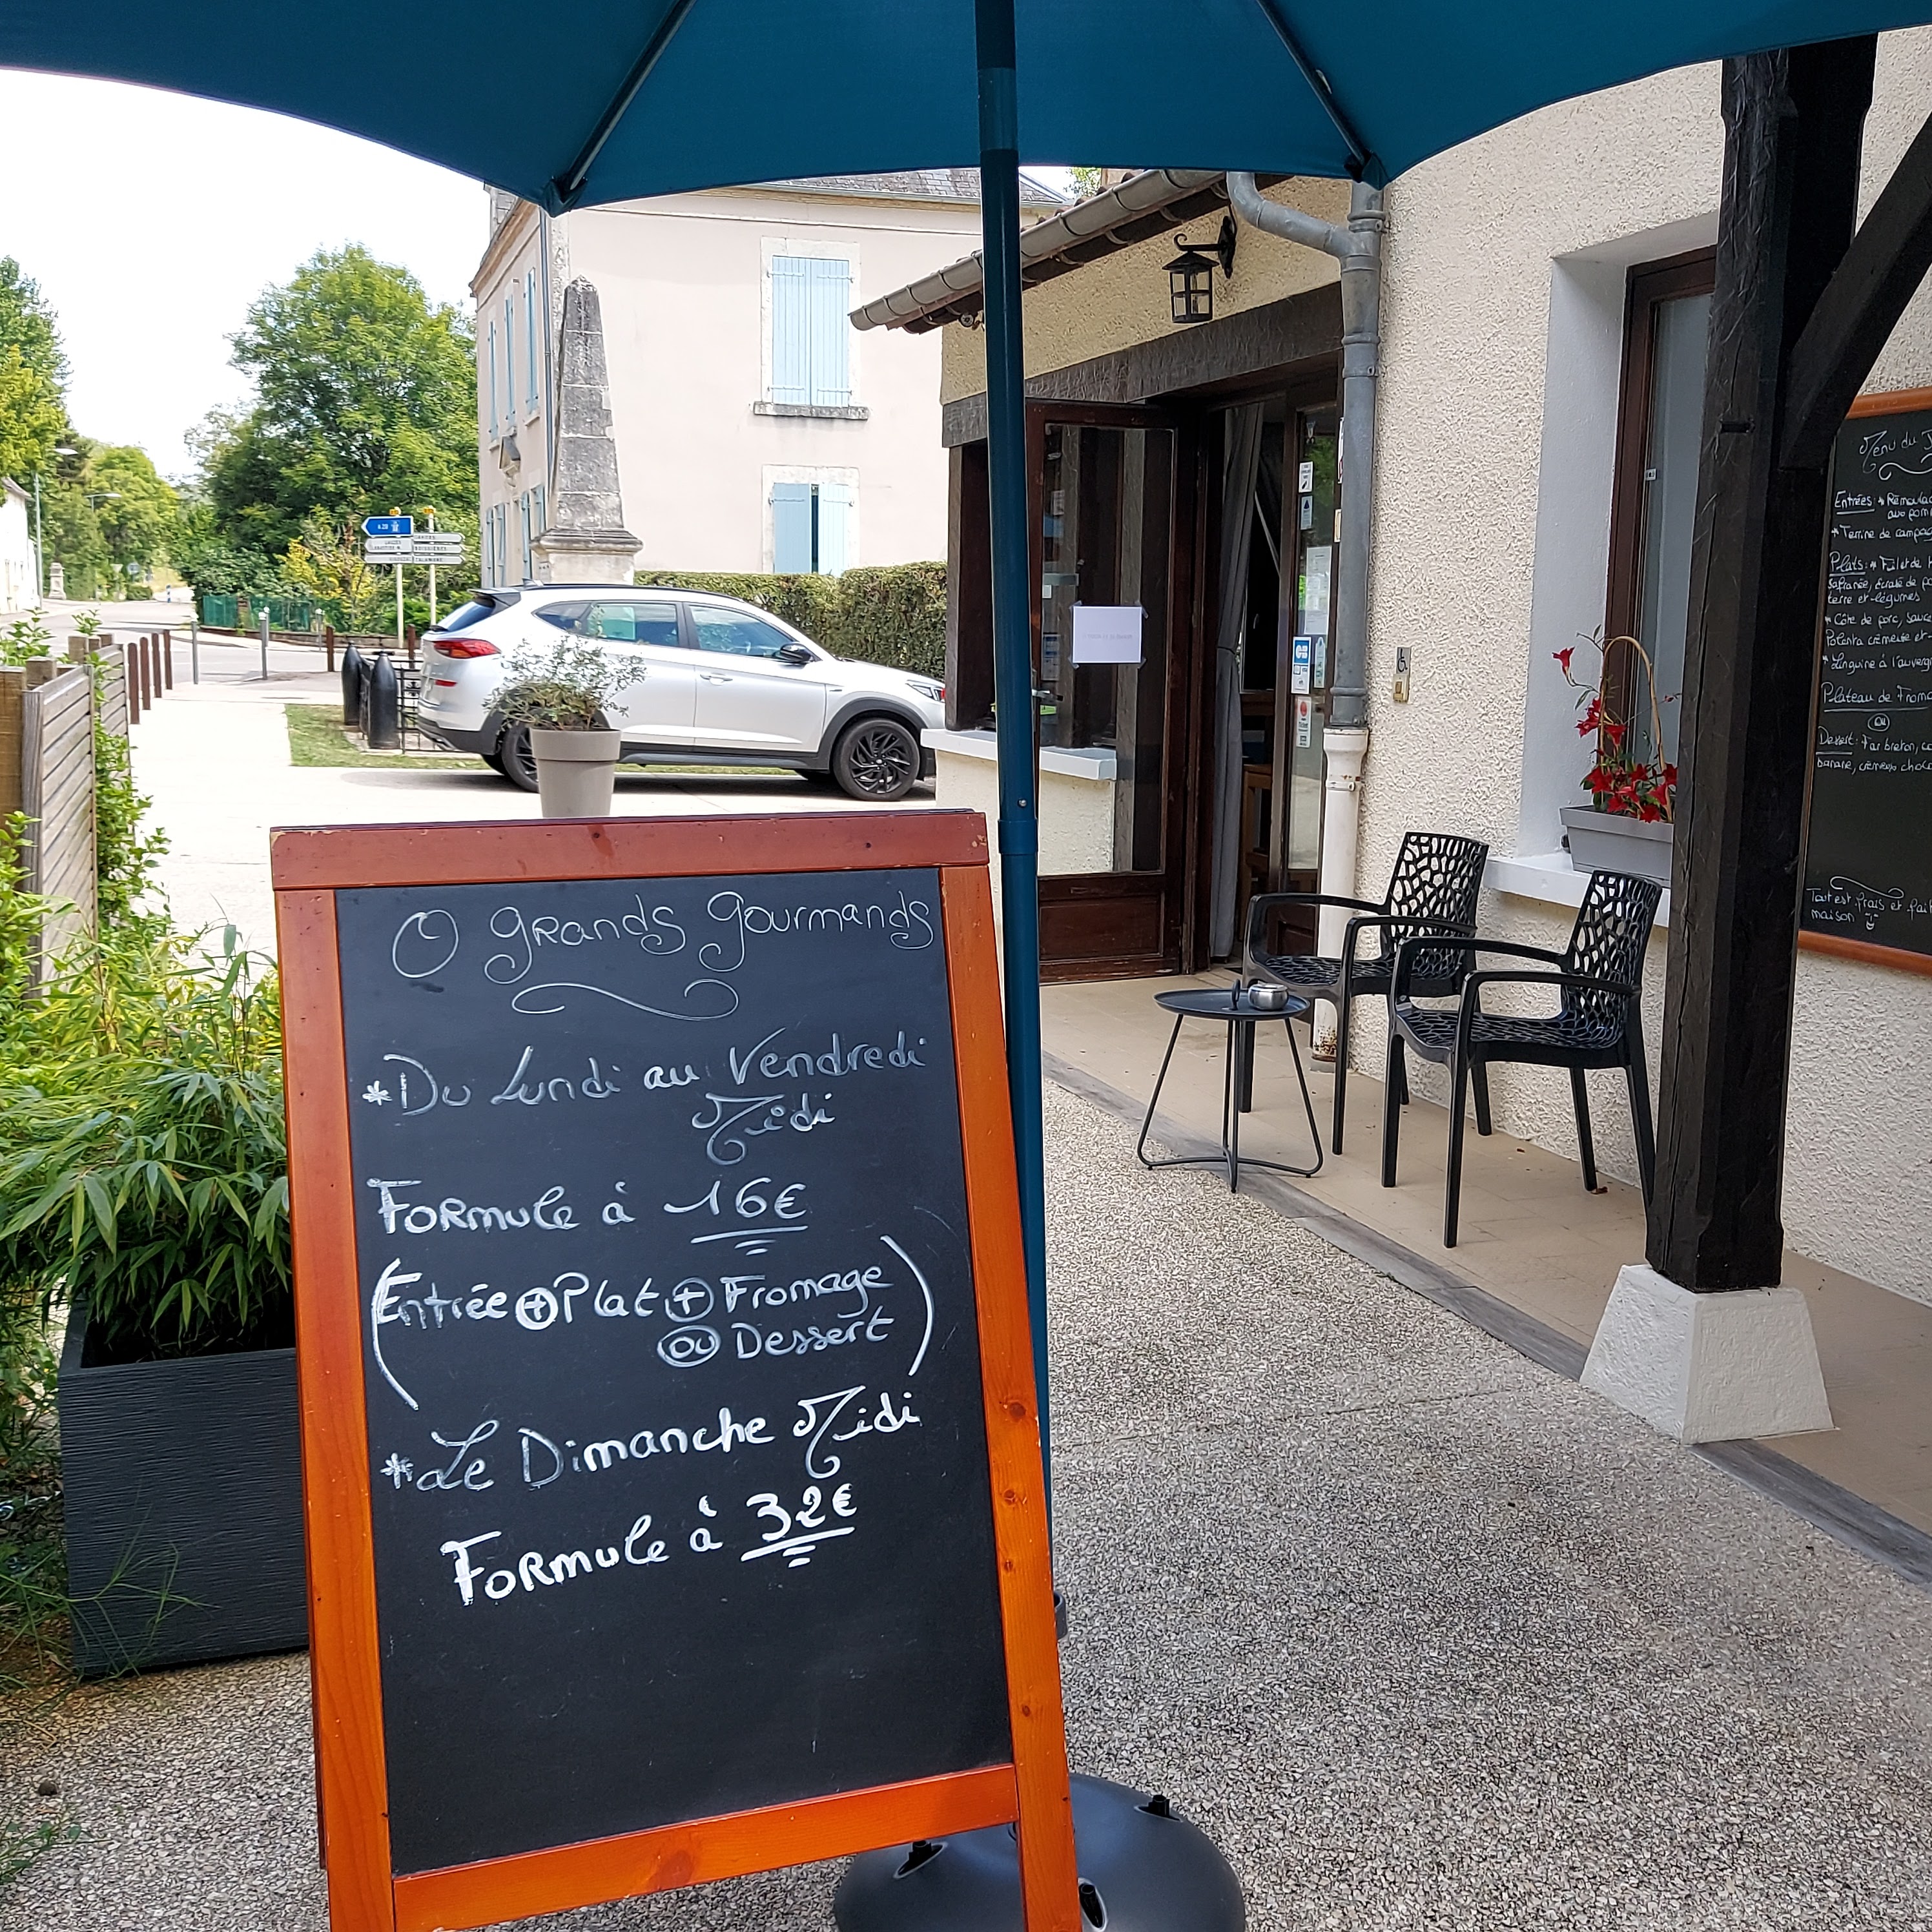 O Grands Gourmands
*Du Lundi au Vendredi
Midi
Formule à 16€
(Entrée + Plat + Fromage
ou Dessert)
*Le Dimanche Midi
Formule à 32€
Menu du J
Entrées: * Rémoula
aux pom
* Terrine de campag
Plats: * Filet de
safranée, écrasé de po
terre et légumes
* Côte de porc, sauce
Polenta crémeuse et
* Linguine à l'auverg
Plateau de Froma
ou
Dessert: Far breton, c
banane, crémeux choco
Tout est frais et fait
maison
BOISSIERES
CB